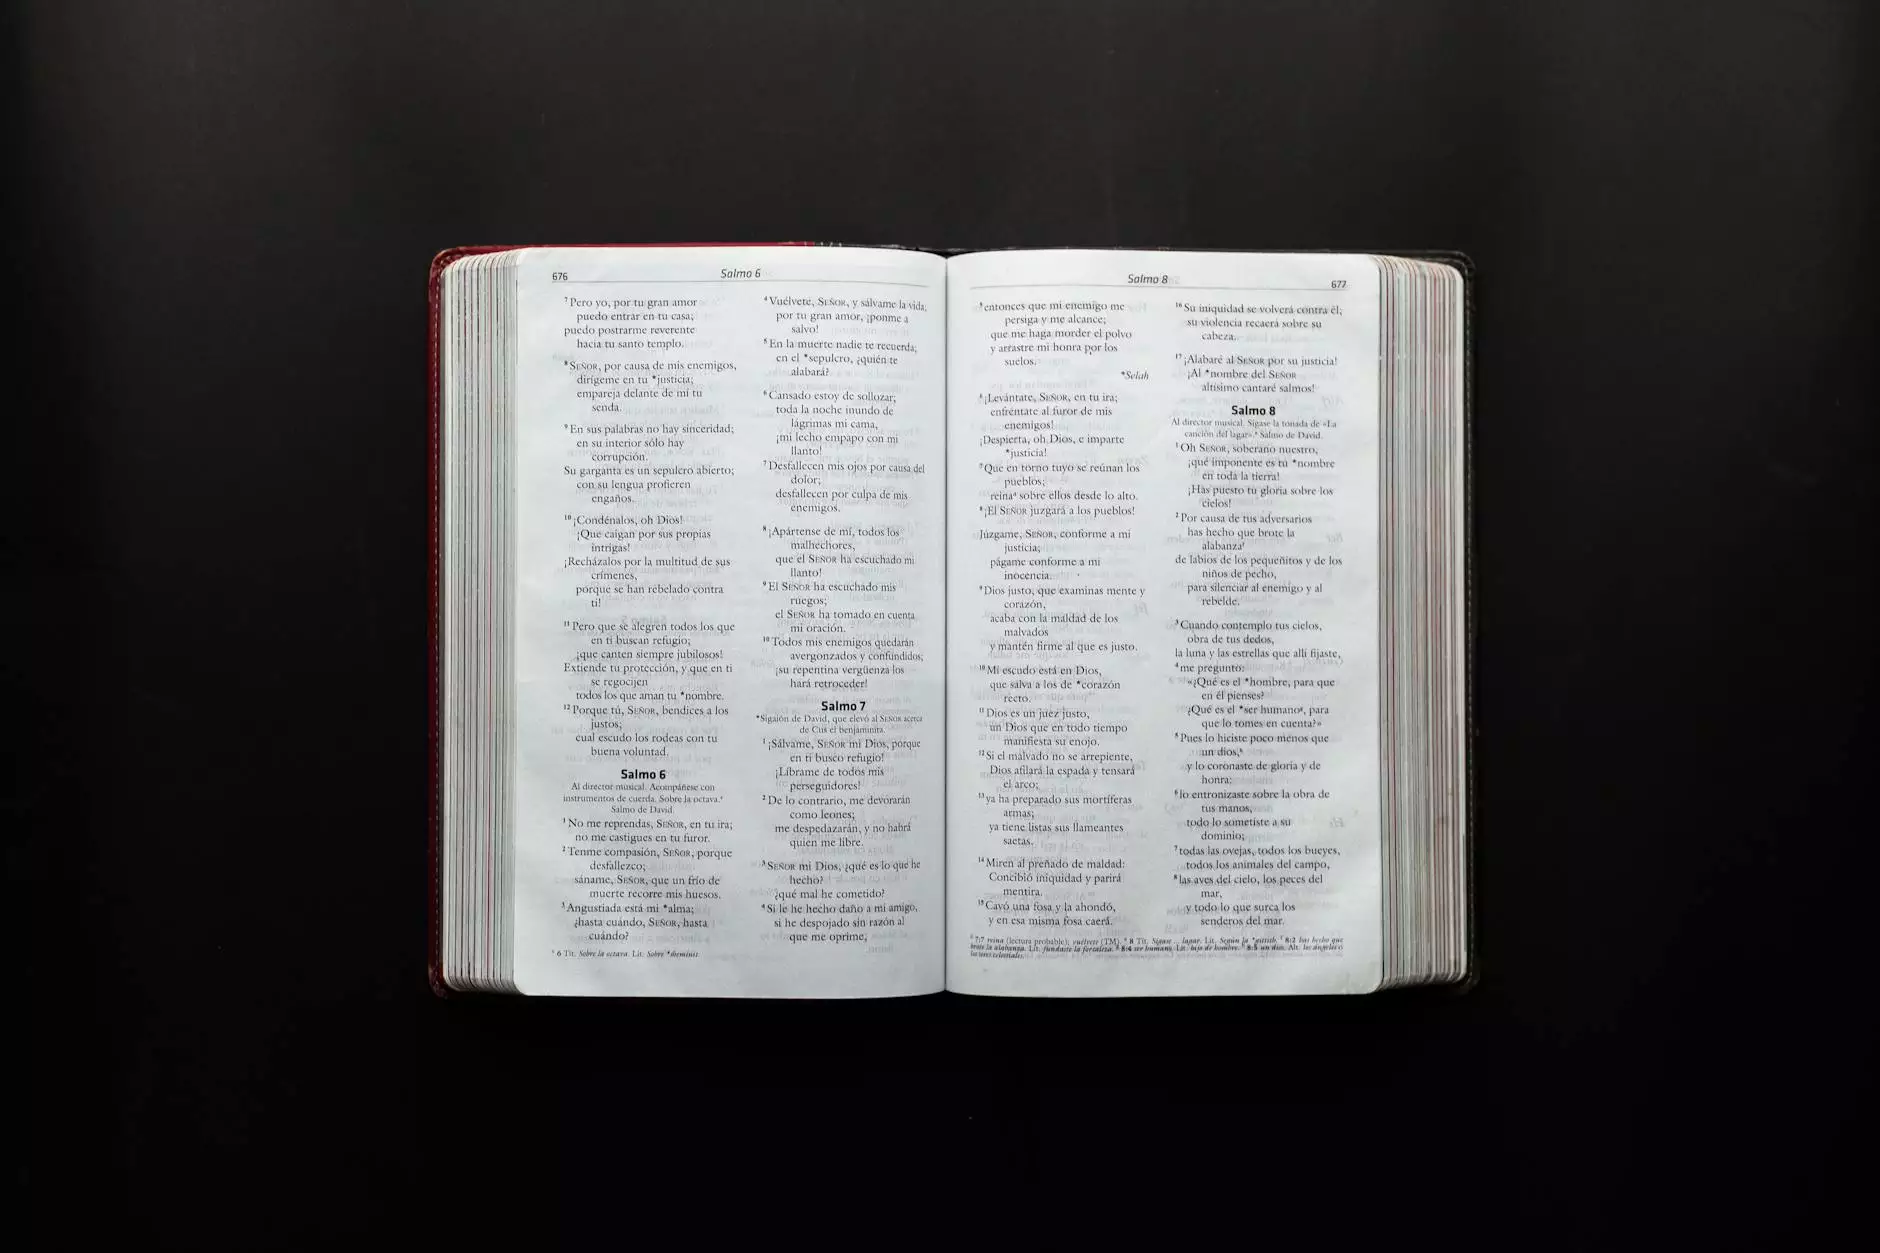 676
Salmo 6
⁷Pero yo, por tu gran amor
puedo entrar en tu casa;
puedo postrarme reverente
hacia tu santo templo.
⁸SEÑOR, por causa de mis enemigos,
dirígeme en tu *justicia;
empareja delante de mí tu
senda.
⁹En sus palabras no hay sinceridad;
en su interior sólo hay
corrupción.
Su garganta es un sepulcro abierto;
con su lengua profieren
engaños.
¹⁰¡Condénalos, oh Dios!
¡Que caigan por sus propias
intrigas!
¡Recházalos por la multitud de sus
crímenes,
porque se han rebelado contra
ti!
¹¹Pero que se alegren todos los que
en ti buscan refugio;
¡que canten siempre jubilosos!
Extiende tu protección, y que en ti
se regocijen
todos los que aman tu *nombre.
¹²Porque tú, SEÑOR, bendices a los
justos;
cual escudo los rodeas con tu
buena voluntad.
Salmo 6
Al director musical. Acompáñese con
instrumentos de cuerda. Sobre la octava.
Salmo de David.
¹No me reprendas, SEÑOR, en tu ira;
no me castigues en tu furor.
²Tenme compasión, SEÑOR, porque
desfallezco;
sáname, SEÑOR, que un frío de
muerte recorre mis huesos.
³Angustiada está mi *alma;
¿hasta cuándo, SEÑOR, hasta
cuándo?
6 Tít. Sobre la octava. Lit. Sobre *sheminit.
⁴Vuélvete, SEÑOR, y sálvame la vida;
por tu gran amor, ¡ponme a
salvo!
⁵En la muerte nadie te recuerda;
en el *sepulcro, ¿quién te
alabará?
⁶Cansado estoy de sollozar;
toda la noche inundo de
lágrimas mi cama,
¡mi lecho empapo con mi
llanto!
⁷Desfallecen mis ojos por causa del
dolor;
desfallecen por culpa de mis
enemigos.
⁸¡Apártense de mí, todos los
malhechores,
que el SEÑOR ha escuchado mi
llanto!
⁹El SEÑOR ha escuchado mis
ruegos;
el SEÑOR ha tomado en cuenta
mi oración.
¹⁰Todos mis enemigos quedarán
avergonzados y confundidos;
¡su repentina vergüenza los
hará retroceder!
Salmo 7
*Sigaión de David, que elevó al SEÑOR acerca
de Cus el benjaminita.
¹¡Sálvame, SEÑOR mi Dios, porque
en ti busco refugio!
¡Líbrame de todos mis
perseguidores!
²De lo contrario, me devorarán
como leones;
me despedazarán, y no habrá
quien me libre.
³SEÑOR mi Dios, ¿qué es lo que he
hecho?
¿qué mal he cometido?
⁴Si le he hecho daño a mi amigo,
si he despojado sin razón al
que me oprime,
Salmo 8
677
⁵entonces que mi enemigo me
persiga y me alcance;
que me haga morder el polvo
y arrastre mi honra por los
suelos.
*Selah
⁶¡Levántate, SEÑOR, en tu ira;
enfréntate al furor de mis
enemigos!
¡Despierta, oh Dios, e imparte
*justicia!
⁷Que en torno tuyo se reúnan los
pueblos;
reina sobre ellos desde lo alto.
⁸¡El SEÑOR juzgará a los pueblos!
Júzgame, SEÑOR, conforme a mi
justicia;
págame conforme a mi
inocencia.
⁹Dios justo, que examinas mente y
corazón,
acaba con la maldad de los
malvados
y mantén firme al que es justo.
¹⁰Mi escudo está en Dios,
que salva a los de *corazón
recto.
¹¹Dios es un juez justo,
un Dios que en todo tiempo
manifiesta su enojo.
¹²Si el malvado no se arrepiente,
Dios afilará la espada y tensará
el arco;
¹³ya ha preparado sus mortíferas
armas;
ya tiene listas sus llameantes
saetas.
¹⁴Miren al preñado de maldad:
Concibió iniquidad y parirá
mentira.
¹⁵Cavó una fosa y la ahondó,
y en esa misma fosa caerá.
¹⁶Su iniquidad se volverá contra él;
su violencia recaerá sobre su
cabeza.
¹⁷¡Alabaré al SEÑOR por su justicia!
¡Al *nombre del SEÑOR
altísimo cantaré salmos!
Salmo 8
Al director musical. Sígase la tonada de «La
canción del lagar». Salmo de David.
¹Oh SEÑOR, soberano nuestro,
¡qué imponente es tu *nombre
en toda la tierra!
¡Has puesto tu gloria sobre los
cielos!
²Por causa de tus adversarios
has hecho que brote la
alabanza
de labios de los pequeñitos y de los
niños de pecho,
para silenciar al enemigo y al
rebelde.
³Cuando contemplo tus cielos,
obra de tus dedos,
la luna y las estrellas que allí fijaste,
⁴me pregunto:
«¿Qué es el *hombre, para que
en él pienses?
¿Qué es el *ser humano, para
que lo tomes en cuenta?»
⁵Pues lo hiciste poco menos que
un dios,
y lo coronaste de gloria y de
honra;
⁶lo entronizaste sobre la obra de
tus manos,
todo lo sometiste a su
dominio;
⁷todas las ovejas, todos los bueyes,
todos los animales del campo,
⁸las aves del cielo, los peces del
mar,
y todo lo que surca los
senderos del mar.
7:7 reina (lectura probable); vuélvete (TM). 8 Tít. Sígase ... lagar. Lit. Según la *gittith. 8:2 has hecho que
brote la alabanza. Lit. fundaste la fortaleza. 8:4 ser humano. Lit. hijo de hombre. 8:5 un dios. Alt. los ángeles o
los seres celestiales.